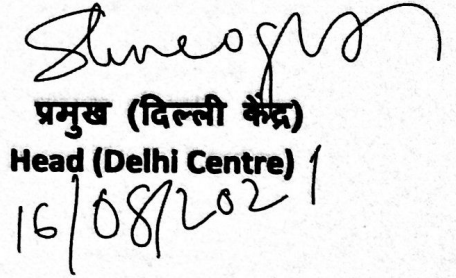 प्रमुख (दिल्ली केंद्र)
Head (Delhi Centre)
16/08/2021